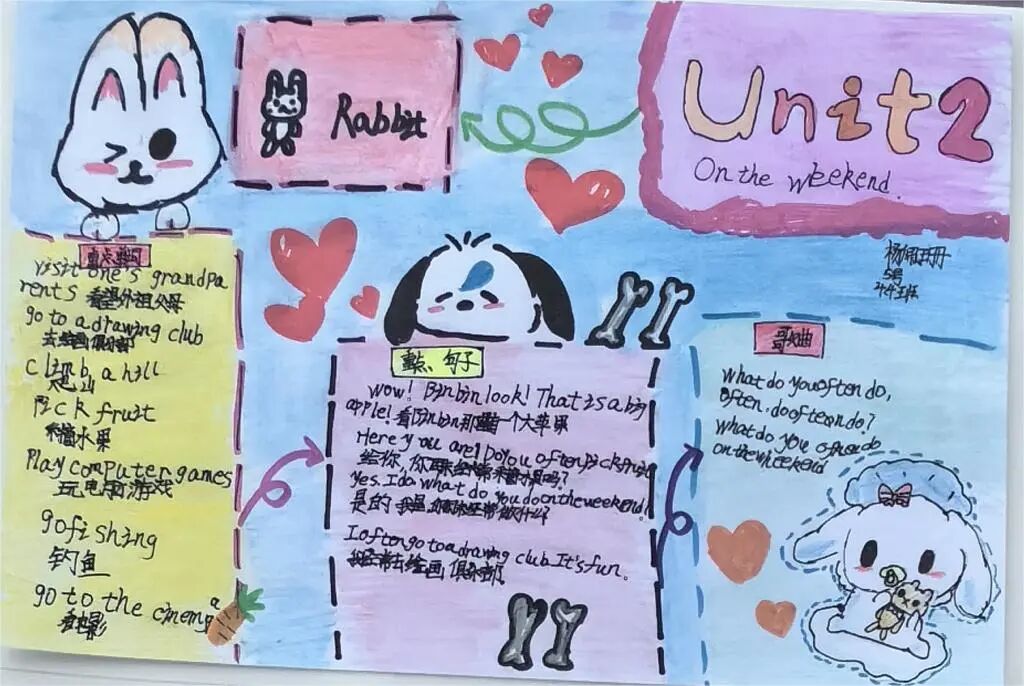 Rabbit
Unit2
On the weekend.
5号
44班
visit one's grandpa
rents 看望外祖父母
go to a drawing club
去绘画俱乐部
climb a hill
爬山
Pick fruit
采摘水果
Play computer games
玩电脑游戏
go fishing
钓鱼
go to the cinema
看电影
重点、句子
wow! Binbin look! That is a big
apple! 看Binbin那是一个大苹果
Here you are! Do you often pick fruit
给你,你经常采摘水果吗?
Yes. I do. what do you do on the weekend!
是的 你经常做什么?
I often go to a drawing club. It's fun.
我经常去绘画俱乐部
歌曲
what do you often do,
often, do often do?
What do you often do
on the weekend